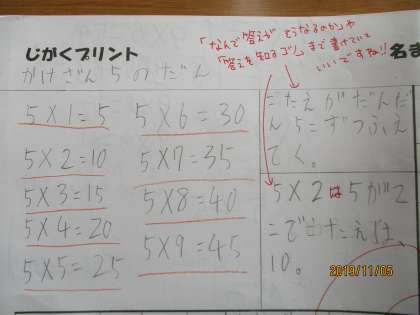 「なんで答えが そうなるのか」や
「答えを知るコツ」まで書けていて
いいですね!!
じがくプリント
名ま
かけざん5のだん
5×1=5
5×2=10
5×3=15
5×4=20
5×5=25
5×6=30
5×7=35
5×8=40
5×9=45
こたえがだんだ
ん5こずつふえ
てく。
5×2は5が2
こで
こたえは、
10。
2019/11/05